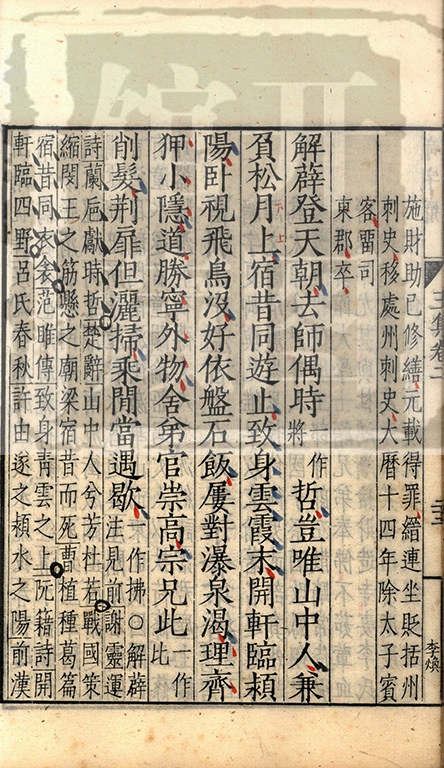 施財助已修繕元載得罪縉連坐貶括州
刺史移處州刺史大曆十四年除太子賓
客畱司
東郡卒
解薜登天朝去師偶時一作將哲豈唯山中人兼
負松月上宿昔同遊止致身雲霞末開軒臨潁
陽卧視飛鳥沒好依盤石飯屢對瀑泉渴理齊
狎小隱道勝寧外物舍弟官崇高宗兄此一作比
削髮荊扉但灑掃乘閒當遇歇一作拂○解薜注見前謝靈運
詩蘭巵獻時哲楚辭山中人兮芳杜若戰國策
縮閔王之筋懸之廟梁宿昔而死曹植種葛篇
宿昔同衣衾范雎傳致身青雲之上阮籍詩開
軒臨四野呂氏春秋許由遂之潁水之陽前漢
李煥